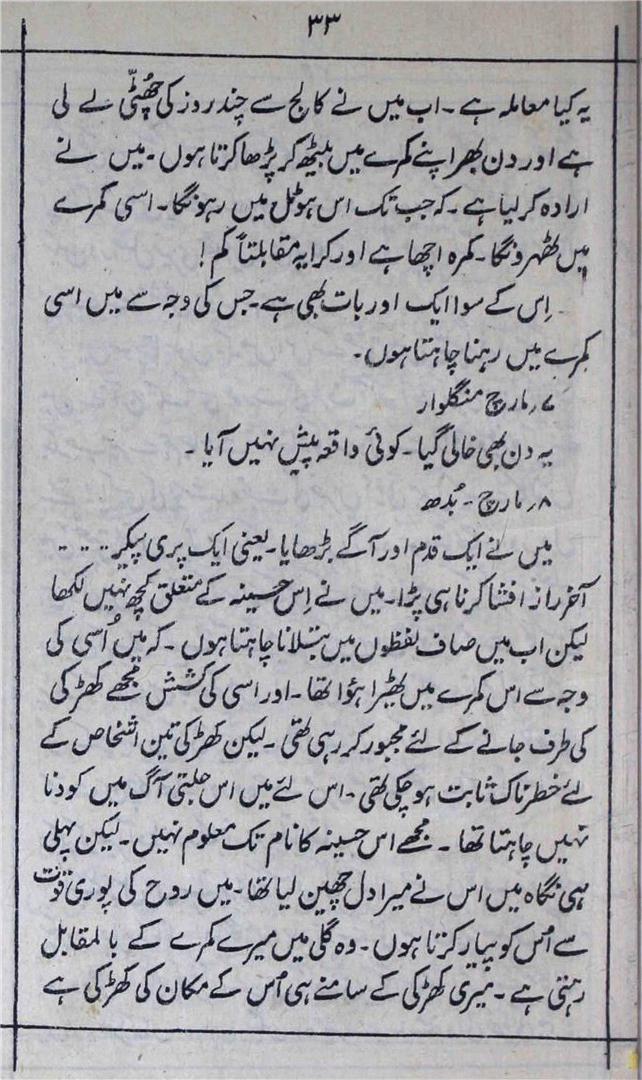 ۳۳
یہ کیا معاملہ ہے ۔ اب میں نے کالج سے چند روز کی چھُٹّی لے لی
ہے اور دن بھر اپنے کمرے میں بیٹھ کر پڑھا کرتا ہوں ۔ میں نے
ارادہ کر لیا ہے ۔ کہ جب تک اس ہوٹل میں رہونگا ۔ اسی کمرے
میں ٹھہرونگا ۔ کمرہ اچھا ہے اور کرایہ مقابلتاً کم !
اِس کے سوا ایک اور بات بھی ہے ۔ جس کی وجہ سے میں اسی
کمرے میں رہنا چاہتا ہوں ۔
۷؍ مارچ منگلوار
یہ دن بھی خالی گیا ۔ کوئی واقعہ پیش نہیں آیا ۔
۸؍ مارچ ۔ بُدھ
میں نے ایک قدم اور آگے بڑھایا ۔ یعنی ایک پری پیکر ۔ ۔ ۔ ۔
آخر راز افشا کرنا ہی پڑا ۔ میں نے اِس حسینہ کے متعلق کچھ نہیں لکھا
لیکن اب میں صاف لفظوں میں بتلانا چاہتا ہوں ۔ کہ میں اُسی کی
وجہ سے اس کمرے میں ٹھیرا ہؤا تھا ۔ اور اسی کی کشش مجھے کھڑکی
کی طرف جانے کے لئے مجبور کر رہی تھی ۔ لیکن کھڑکی تین اشخاص کے
لئے خطرناک ثابت ہو چکی تھی ۔ اس لئے میں اس جلتی آگ میں کودنا
نہیں چاہتا تھا ۔ مجھے اس حسینہ کا نام تک معلوم نہیں ۔ لیکن پہلی
ہی نگاہ میں اس نے میرا دل چھین لیا تھا ۔ میں روح کی پوری قوّت
سے اُس کو پیار کرتا ہوں ۔ وہ گلی میں میرے کمرے کے بالمقابل
رہتی ہے ۔ میری کھڑکی کے سامنے ہی اُس کے مکان کی کھڑکی ہے